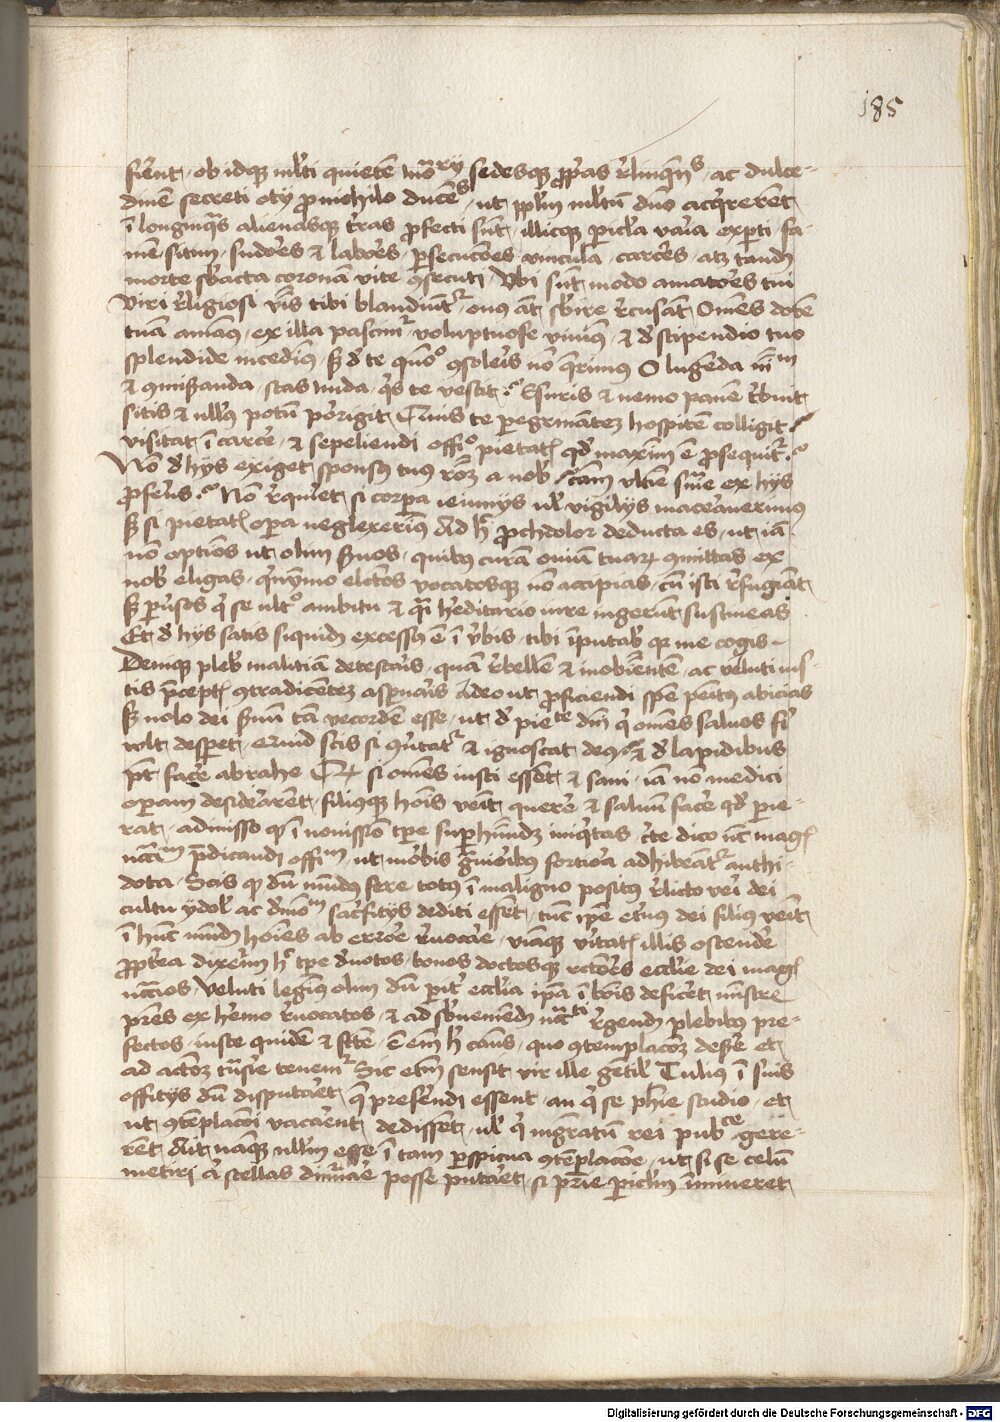 185
fierent, ob idque multi quietem sedesque propias relinquentes, ac dulce-
dinem secreti otii pro nichilo ducentes, ut populum multum domino acquirerent,
in longinquas alienasque terras profecti sunt, illicque pericula varia experti, fa-
mem sitim, sudores et labores, persecuciones vincula, carceres, atque tandem
morte subacta coronam vite consecuti, Ubi sunt modo amatores tui
viri religiosi verbis tibi blandiuntur, onus autem subire recusant Omnes dotem
tuam amamus, ex illa pascimur, voluptuose vivimus, et de stipendio tuo
splendide incedimus, sed de te quomodo consoleris non querimus O lugenda
et commiseranda, stas nuda, quis te vestit? Esuris et nemo panem tribuit,
sitis et nullus potum porrigit, Quis te peregrinantem hospitem colligit?
visitat in carcere, et sepeliendi officio pietatis quod maximum est prosequitur?
Non de hiis exiget sponsus tuus racionem a nobis, cum ultimam summe ex hiis
proferens? Non requiret, si corpora ieiuniis vel vigiliis maceraverimus
sed si pietatis opera neglexerimus Ad hoc prochdolor deducta es, ut iam
non optimos ut olim servos, quibus curam ovium tuarum committas ex
nobis eligas, quinymmo electos vocatosque non accipias, cum isti refugiant,
sed perversos qui se ultro ambitu et quasi hereditario iure ingerunt, sustineas
Et de hiis satis siquidem excessum est in verbis, tibi imputabis que me cogis-
Denique plebis malitiam detestaris, quam rebellem et inobedientem, ac veluti ius-
tis preceptis contradicentem aspernaris adeo ut proficiendi spem penitus abicias
sed nolo dei servum tam vecordem esse, ut de pietate domini qui omnes salvos fieri
vult desperet, Quid scis si convertatur et ignoscat deus, et de lapidibus
potest facere abrahe Quia si omnes iusti essent, et sani, iam non medici
operam desiderarent, filiusque hominis venit querere et salvum facere quod perie-
rat, admisso quod in novissimo tempore superhabundet iniquitas, certe dico tunc magis
necessarium predicandi officium, ut morbis gravioribus fortiora adhibeantur anthi-
dota, Scis quod dum mundus fere totus in maligno positus relicto veri dei
cultu ydolis ac demonum sacrificiis dediti essent, tunc ipse eternus dei filius venit,
in hunc mundum homines ab errore revocare, viamque veritatis illis ostendere
propterea dixerim hoc tempore devotos, bonos doctosque rectores ecclesie dei magis
necessarios, veluti legimus olim dum periret ecclesia ipsa in bonis deficeret ministris
patres ex heremo revocatos, et ad subveniendum necessitati regendis plebibus pre-
fectos, iuste quidem et sancte, est enim hic casus, quo contemplacionem deserere et
ad actionem transire tenemur Sic etiam sensit vir ille gentilis Tulius in suis
officiis dum disputaret, qui preferendi essent, an qui se philosophie studio, et,
ut contemplacioni vacarent, dedissent, vel qui magistratum rei publice gere-
rent, Ait namque nullum esse in tam perspicua contemplacione, ut, si se celum
metiri aut stellas dinumerare posse putaret, si patrie periculum immineret,
Digitalisierung gefördert durch die Deutsche Forschungsgemeinschaft - DFG